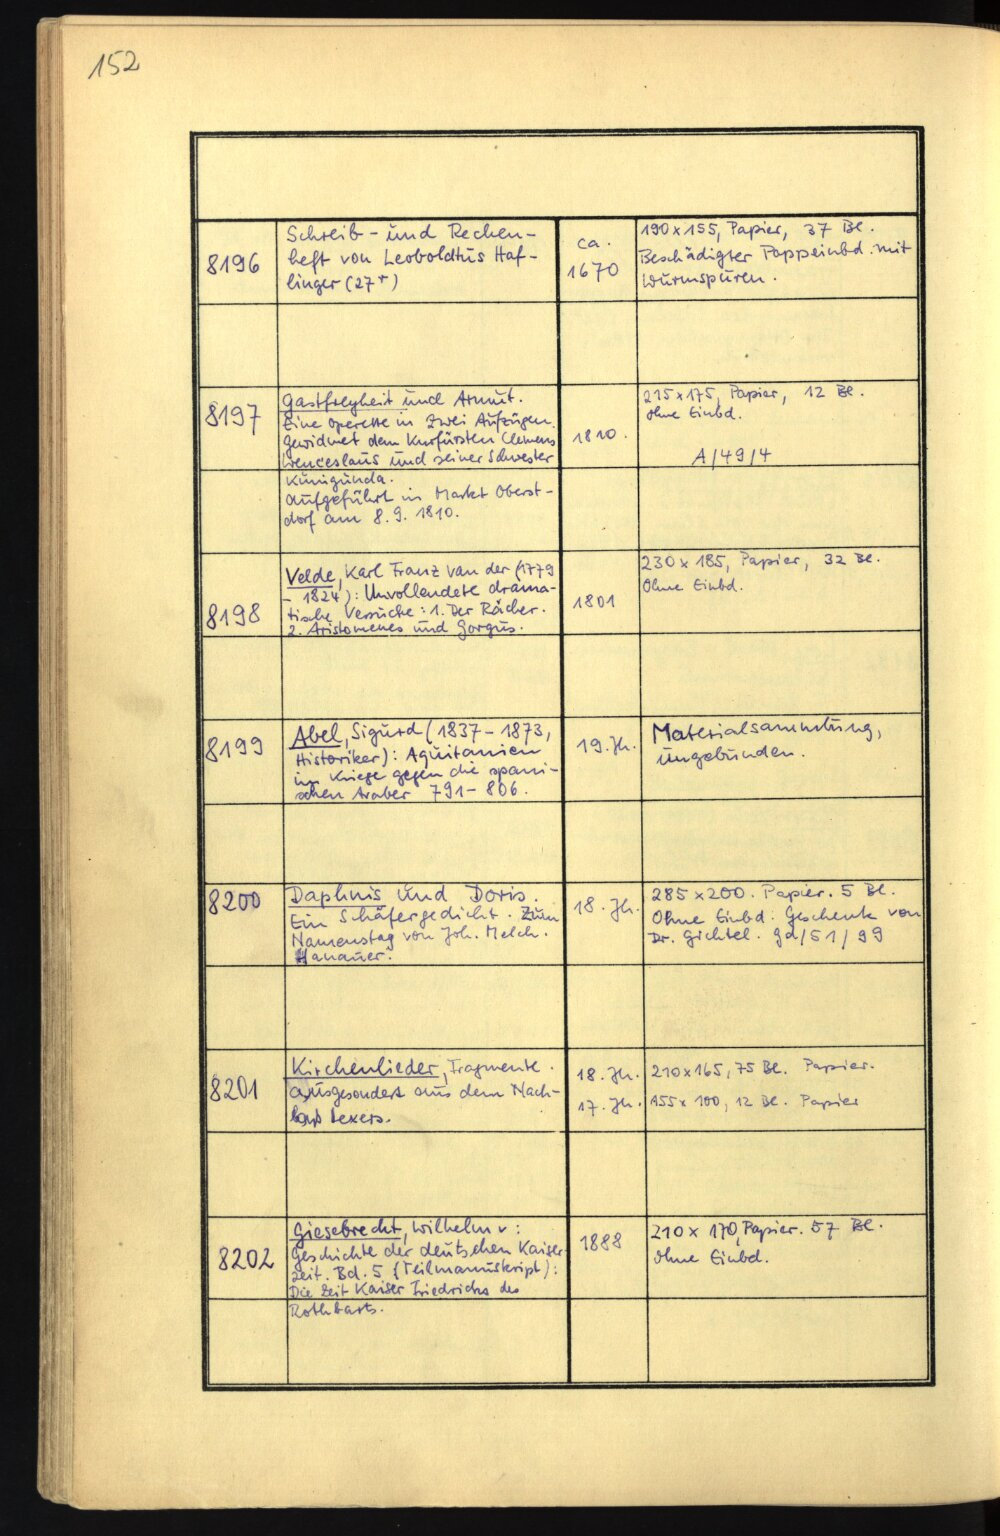 152
8196
Schreib- und Rechen-
heft von Leoboldtus Haf-
linger (27r)
ca.
1670
190x155, Papier, 37 Bl.
Beschädigter Pappeinbd. mit
Wurmspuren.
8197
Gastfreyheit und Armut.
Eine Operette in zwei Aufzügen.
Gewidmet dem Kurfürsten Clemens
Wenceslaus und seiner Schwester
Kunigunda.
Aufgeführt in Markt Oberst-
dorf am 8.9. 1810.
1810.
215x175, Papier, 12 Bl.
Ohne Einbd.
A/49/4
8198
Velde, Karl Franz van der (1779
- 1824): Unvollendete drama-
tische Versuche: 1. Der Rächer.
2. Aristomenes und Gorgus.
1801
230x185, Papier, 32 Bl.
Ohne Einbd.
8199
Abel, Sigurd (1837-1873,
Historiker): Aquitanien
im Kriege gegen die spani-
schen Araber 791-806.
19. Jh.
Materialsammlung,
ungebunden.
8200
Daphnis und Doris.
Ein Schäfergedicht. Zum
Namenstag von Joh. Melch.
Hanauer.
18. Jh.
285x200. Papier. 5 Bl.
Ohne Einbd. Geschenk von
Dr. Gichtel. gd/51/99
8201
Kirchenlieder, Fragmente.
Ausgesondert aus dem Nach-
lass Lexers.
18. Jh.
17. Jh.
210x165, 75 Bl. Papier.
155x100, 12 Bl. Papier
8202
Giesebrecht, Wilhelm v:
Geschichte der deutschen Kaiser
zeit. Bd. 5 (Teilmanuskript):
Die Zeit Kaiser Friedrichs des
Rothbarts.
1888
210x170, Papier. 57 Bl.
Ohne Einbd.